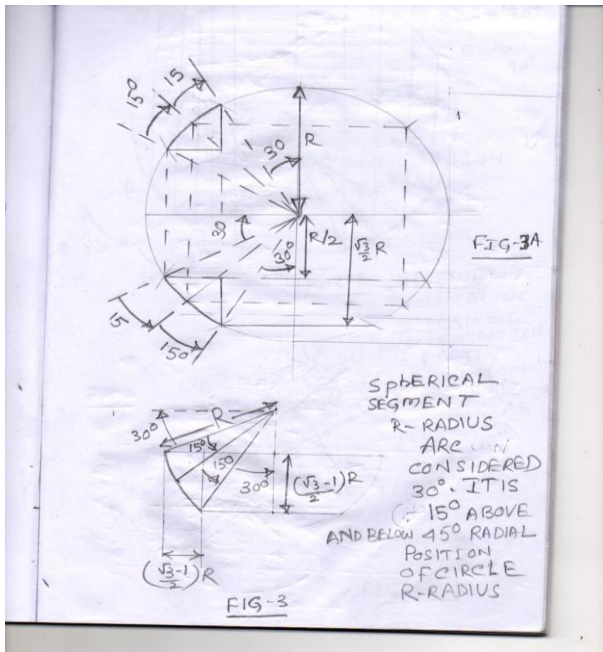 15°
15
30
R
30
R/2
√3/2 R
30°
FIG-3A
15
15°
30°
R
15°
15°
30°
(√3-1)/2 R
(√3-1)/2 R
FIG-3
SPhERICAL
SEGMENT
R-RADIUS
ARC
CONSIDERED
30°. IT IS
15° ABOVE
AND BELOW 45° RADIAL
POSITION
OF CIRCLE
R-RADIUS